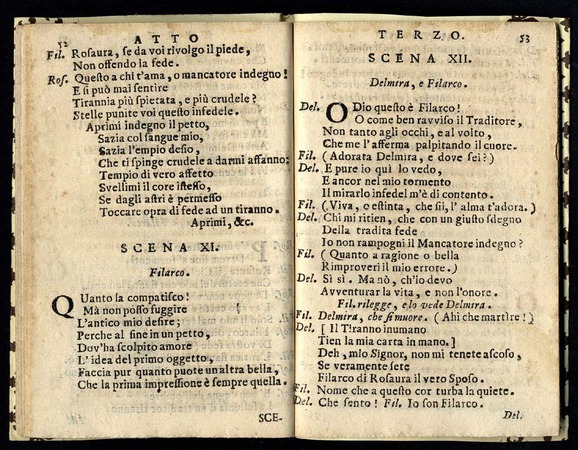 52
ATTO
Fil. Rosaura, se da voi rivolgo il piede,
Non offendo la fede.
Ros. Questo a chi t'ama, o mancatore indegno!
E si può mai sentire
Tirannia più spietata, e più crudele?
Stelle punite voi questo infedele.
Aprimi indegno il petto,
Sazia col sangue mio,
Sazia l'empio desio,
Che ti spinge crudele a darmi affanno:
Tempio di vero affetto
Svellimi il core istesso,
Se dagli astri è permesso
Toccare opra di fede ad un tiranno.
Aprimi, &c.
SCENA XI.
Filarco.
QUanto la compatisco!
Mà non posso fuggire
L'antico mio desire;
Perche al fine in un petto,
Dov'ha scolpito amore
L'idea del primo oggetto,
Faccia pur quanto puote un'altra bella,
Che la prima impressione è sempre quella.
SCE-
TERZO.
53
SCENA XII.
Delmira, e Filarco.
Del. ODio questo è Filarco!
O come ben ravviso il Traditore,
Non tanto agli occhi, e al volto,
Che me l'afferma palpitando il cuore.
Fil. (Adorata Delmira, e dove sei?)
Del. E pure io quì lo vedo,
E ancor nel mio tormento
Il mirarlo infedel m'è di contento.
Fil. (Viva, o estinta, che sii, l'alma t'adora.)
Del. Chi mi ritien, che con un giusto sdegno
Della tradita fede
Io non rampogni il Mancatore indegno?
Fil. (Quanto a ragione o bella
Rimproveri il mio errore.)
Del. Sì sì. Ma nò, ch'io devo
Avventurar la vita, e non l'onore.
Fil. rilegge, e lo vede Delmira.
Fil. Delmira, che si muore. (Ahi che martìre!)
Del. [Il Tiranno inumano
Tien la mia carta in mano.]
Deh, mio Signor, non mi tenete ascoso,
Se veramente sete
Filarco di Rosaura il vero Sposo.
Fil. Nome che a questo cor turba la quiete.
Del. Che sento! Fil. Io son Filarco.
Del.